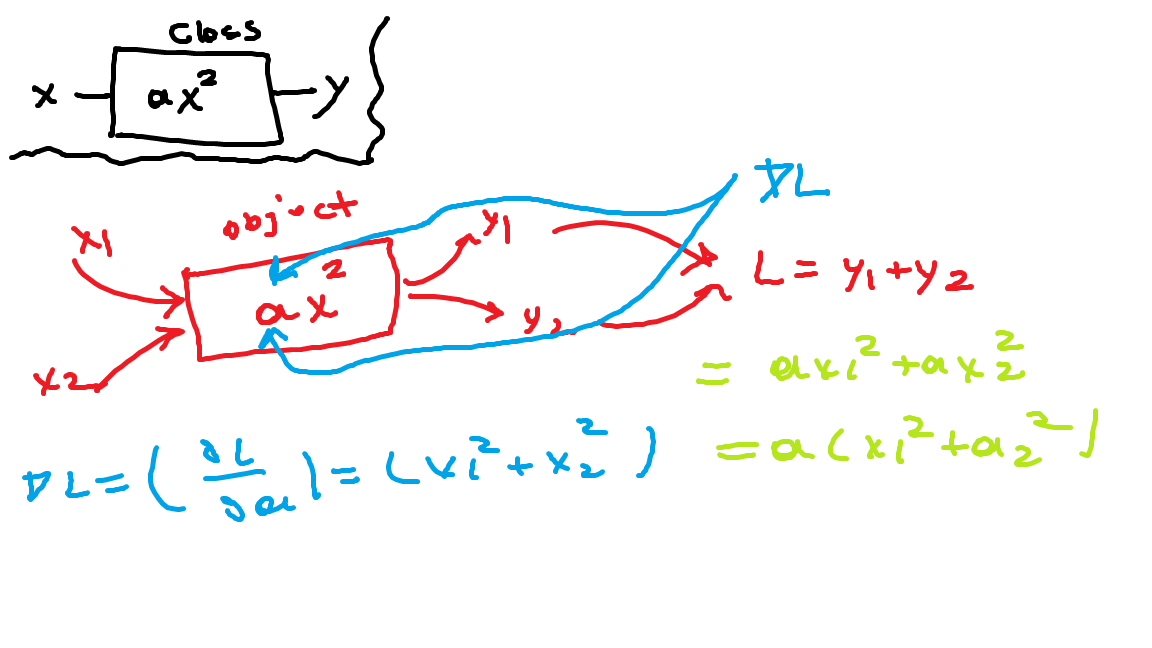 Class
x ax² y
object
∇L
x1
y1
ax²
L = y1 + y2
y2
x2
= ax1² + ax2²
= a(x1² + a2²)
∇L = (∂L/∂a) = (x1² + x2²)